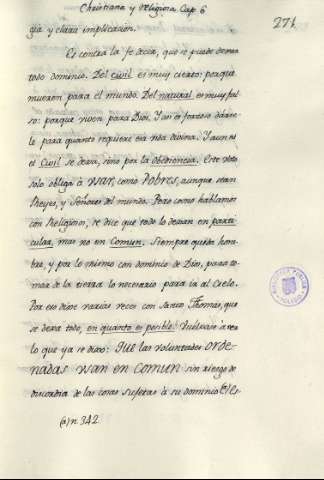 Christiana y Religiosa Cap. 6
271
gia y clara implicacion.
Es contra la fe decir, que se puede dexar
todo dominio. Del civil es muy cierto: porque
mueren para el mundo. Del natural es muy fal-
so: porque viven para Dios. Y asi es forzoso darse-
le para quanto requiere esa vida divina. Y aun es-
te Civil se dexa, sino por la obediencia. Este voto
solo obliga à usar, como Pobres, aunque sean
Reyes, y Señores del mundo. Pero como hablamos
con Religiosos, se dice que todo lo dexan en parti-
cular, mas no en Comun. Siempre queda hom-
bre, y por lo mismo con dominio de Dios, para to-
mar de la tierra lo necesario para ir al Cielo.
Por eso dixe varias veces con Santo Thomas, que
se dexa todo, en quanto es posible.
lo que ya se dixo: Que las voluntades orde-
nadas usan en comun sin riesgo de
discordia de las cosas sujetas à su dominio
(a) n. 342.
BIBLIOTECA PUBLICA
TOLEDO